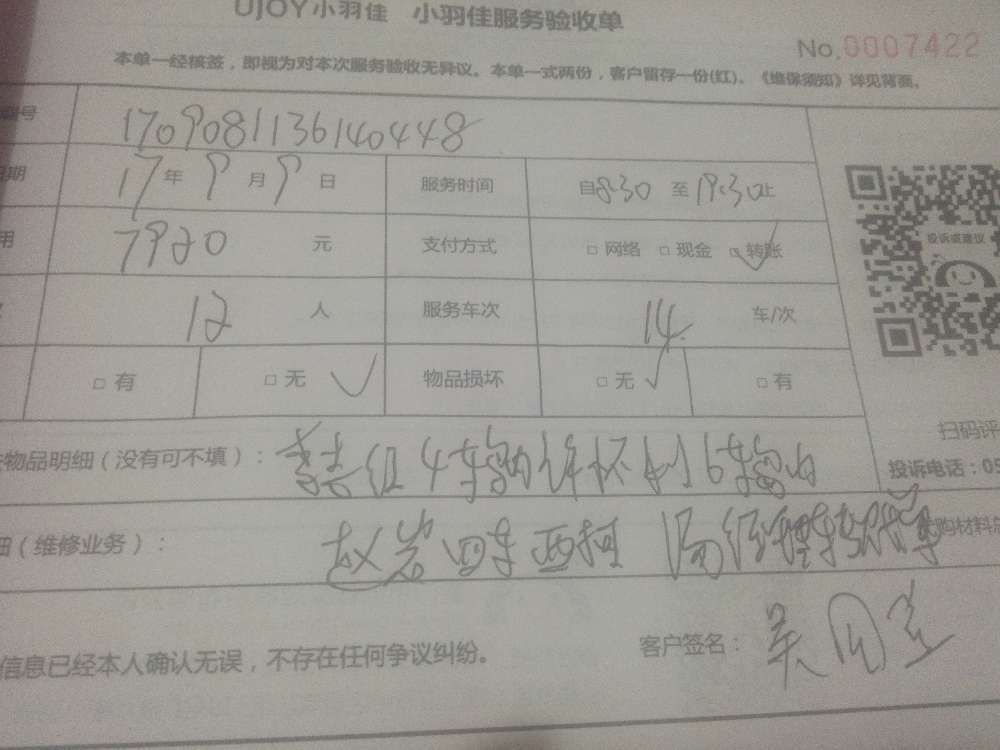 UJOY小羽佳 小羽佳服务验收单
No.0007422
本单一经核签，即视为对本次服务验收无异议。本单一式两份，客户留存一份(红)。《维保须知》详见背面。
号 1709081136140448
期 17年9月9日 服务时间 自8:30至19:30止
用 7920元 支付方式 □网络 □现金 □转账
投诉或建议
12人 服务车次 14车/次
□有 □无 ✓ 物品损坏 □无 ✓ □有
扫码评
物品明细（没有可不填）： 组4车 6车
投诉电话：05
细（维修业务）： 赵岩四车 西柯 汤经理
购材料
信息已经本人确认无误，不存在任何争议纠纷。
客户签名： 吴